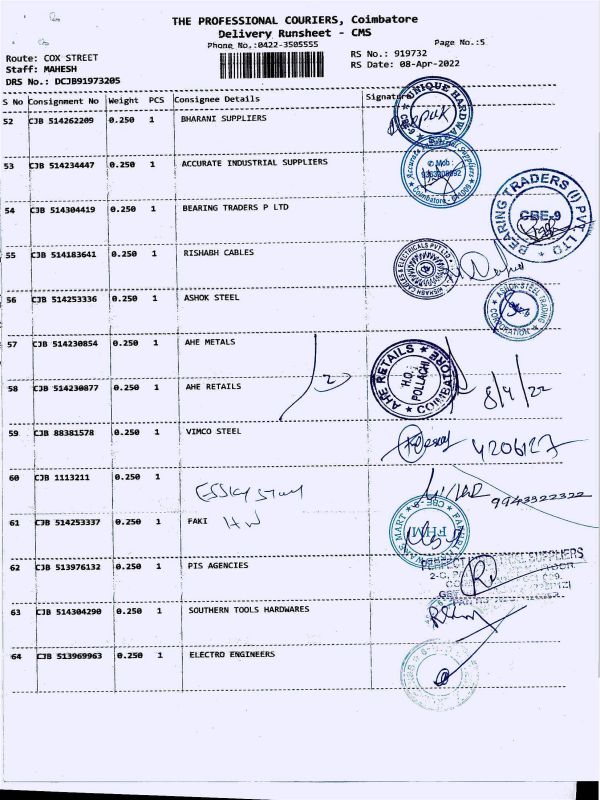 THE PROFESSIONAL COURIERS, Coimbatore
Delivery Runsheet - CMS
Phone No.:0422-3505555
Page No.:5
Route: COX STREET
RS No.: 919732
Staff: MAHESH
RS Date: 08-Apr-2022
DRS No.: DCJB91973205
S No Consignment No Weight PCS Consignee Details Signature
52 CJB 514262209 0.250 1 BHARANI SUPPLIERS
UNIQUE HARDWA
53 CJB 514234447 0.250 1 ACCURATE INDUSTRIAL SUPPLIERS
Accurate Industrial Suppliers
Mob :
Coimbatore
54 CJB 514304419 0.250 1 BEARING TRADERS P LTD
BEARING TRADERS (I) PVT. LTD
CBE-9
55 CJB 514183641 0.250 1 RISHABH CABLES
RISHABH CABLES & ELECTRICALS PVT LTD
56 CJB 514253336 0.250 1 ASHOK STEEL
ASHOK STEEL TRADING CORPORATION
57 CJB 514230854 0.250 1 AHE METALS
2
AHE RETAILS
H.O.
POLLACHI
COIMBATORE
58 CJB 514230877 0.250 1 AHE RETAILS
8/4/22
59 CJB 88381578 0.250 1 VIMCO STEEL
4206127
60 CJB 1113211 0.250 1
9943322322
61 CJB 514253337 0.250 1 FAKI
FHM
62 CJB 513976132 0.250 1 PIS AGENCIES
PERFECT
SUPPLIERS
63 CJB 514304290 0.250 1 SOUTHERN TOOLS HARDWARES
64 CJB 513969963 0.250 1 ELECTRO ENGINEERS